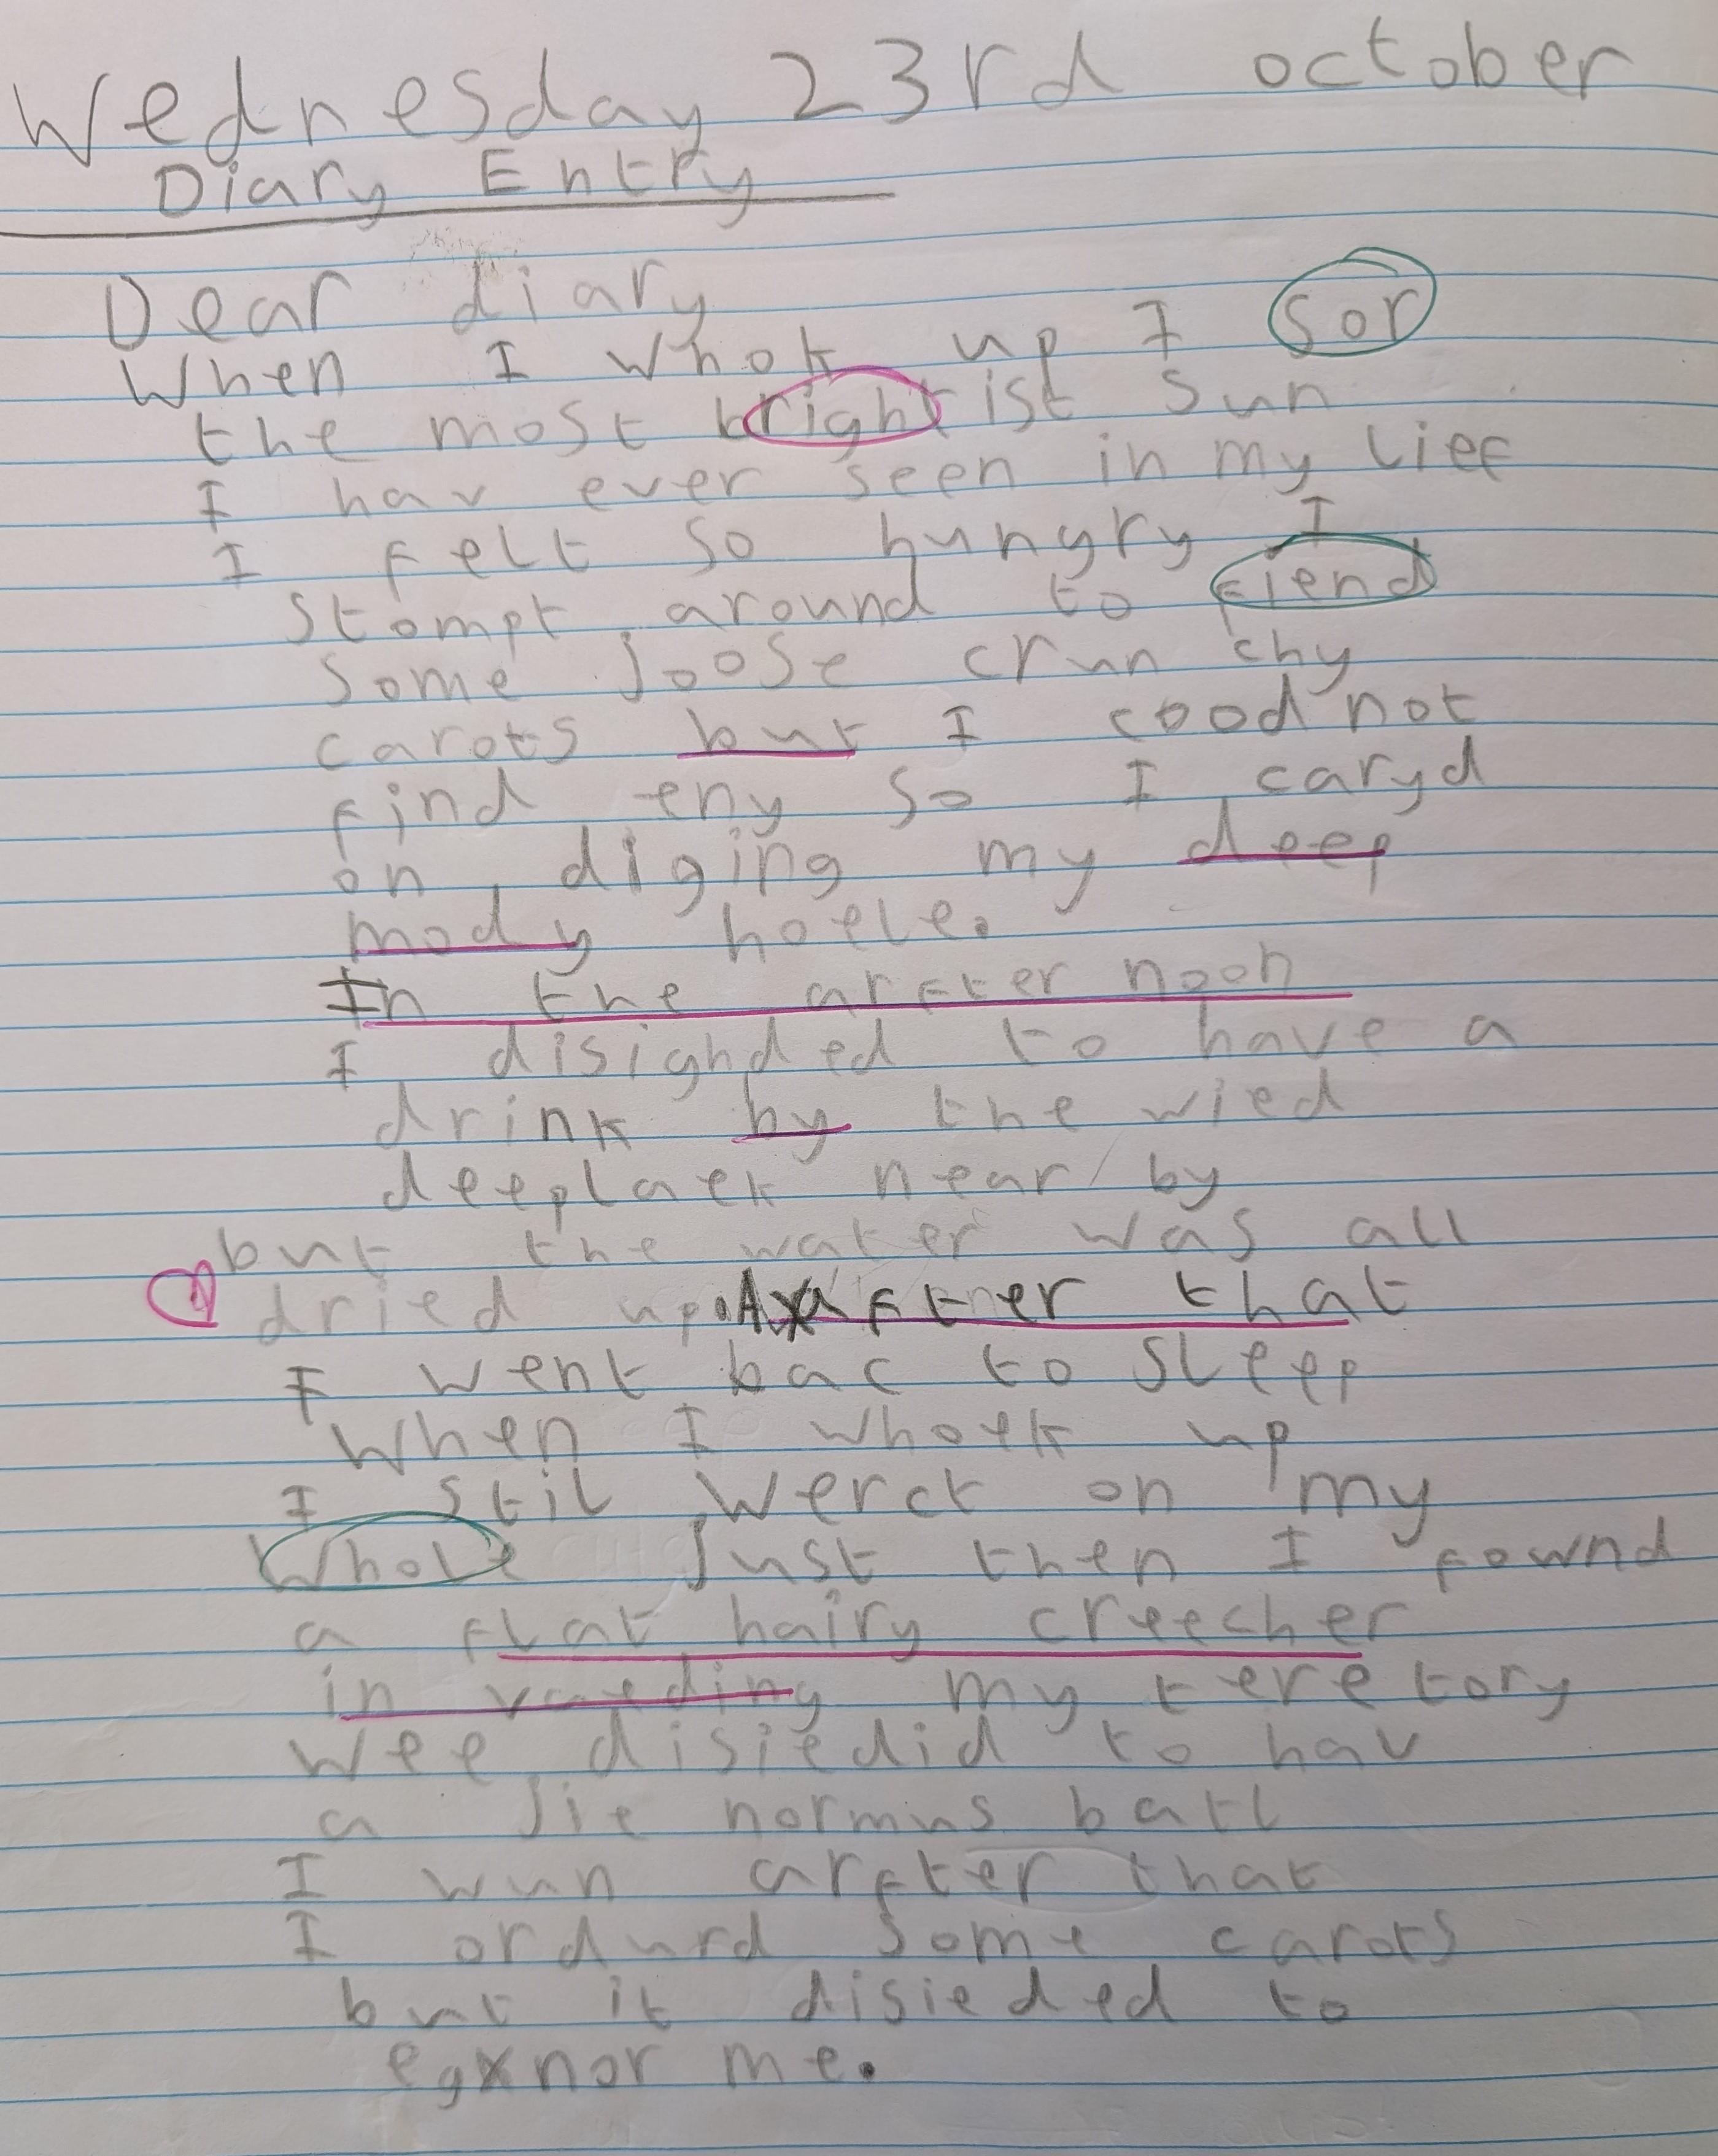 Wednesday 23rd october
Diary Entry
Dear diary
When I whok up I sor
the most brightist sun
I hav ever seen in my lief
I felt so hungry I
stompt around to fiend
some joose crun chy
carots but I cood not
find eny so I caryd
on diging my deep
mody hoele.
In the arfter noon
I disighded to have a
drink by the wied
deeplaek near by
but the water was all
dried up. After that
I went bac to sleep
When I whoek up
I stil werct on my
whole Just then I fownd
a flat hairy creecher
in vaeding my teretory
wee disiedid to hav
a jie normus batl
I wun arfter that
I ordurd some carots
but it disieded to
egnor me.